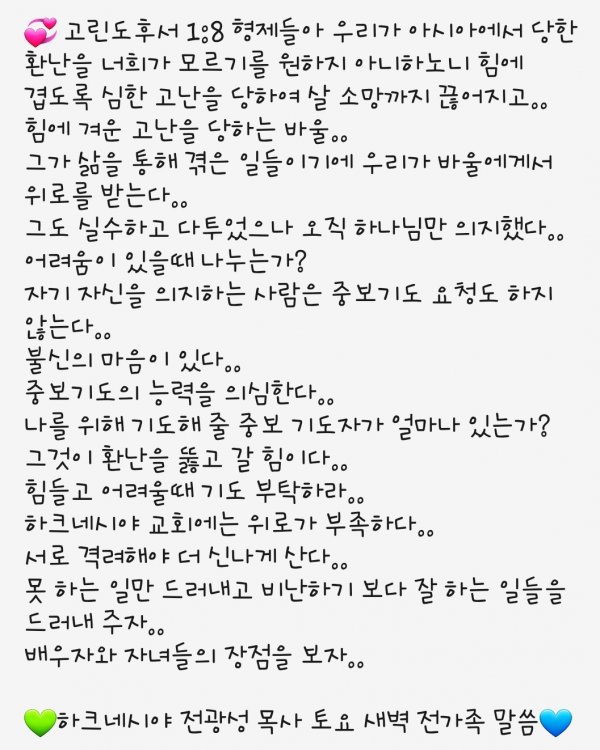 💞 고린도후서 1:8 형제들아 우리가 아시아에서 당한
환난을 너희가 모르기를 원하지 아니하노니 힘에
겹도록 심한 고난을 당하여 살 소망까지 끊어지고。。
힘에 겨운 고난을 당하는 바울。。
그가 삶을 통해 겪은 일들이기에 우리가 바울에게서
위로를 받는다。。
그도 실수하고 다투었으나 오직 하나님만 의지했다。。
어려움이 있을때 나누는가?
자기 자신을 의지하는 사람은 중보기도 요청도 하지
않는다。。
불신의 마음이 있다。。
중보기도의 능력을 의심한다。。
나를 위해 기도해 줄 중보 기도자가 얼마나 있는가?
그것이 환난을 뚫고 갈 힘이다。。
힘들고 어려울때 기도 부탁하라。。
하크네시야 교회에는 위로가 부족하다。。
서로 격려해야 더 신나게 산다。。
못 하는 일만 드러내고 비난하기 보다 잘 하는 일들을
드러내 주자。。
배우자와 자녀들의 장점을 보자。。
💚하크네시야 전광성 목사 토요 새벽 전가족 말씀💙